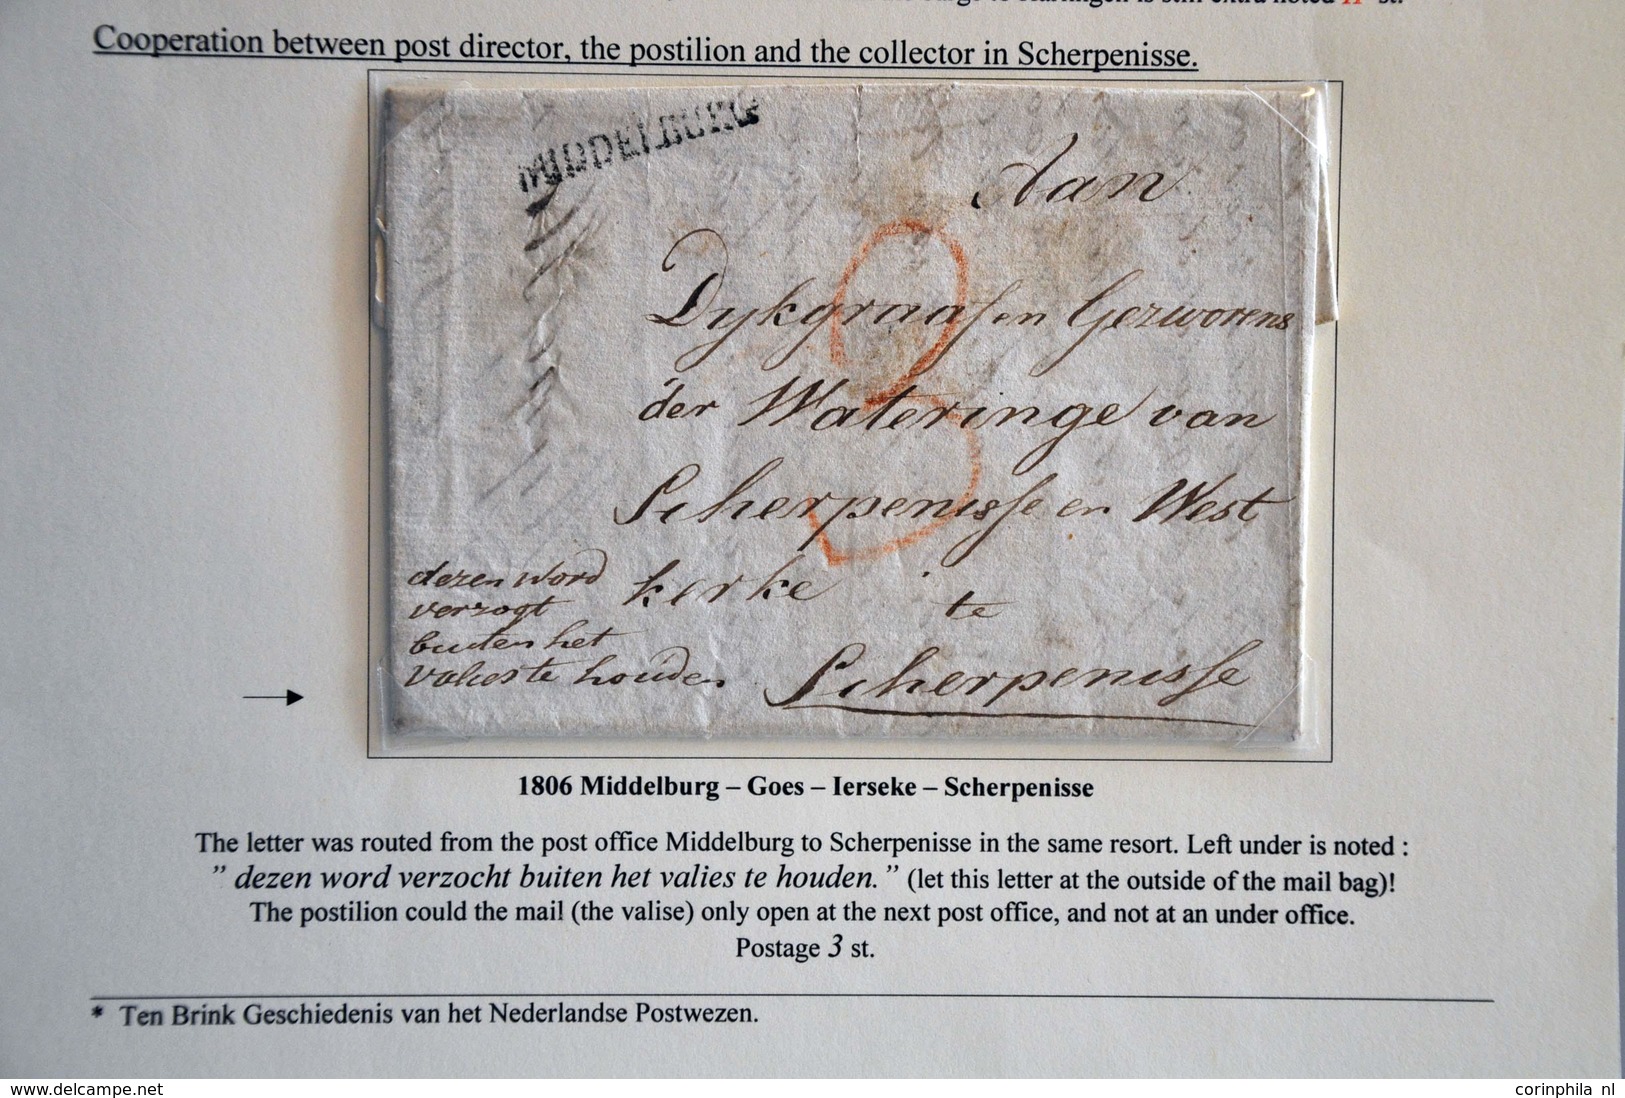 to Harlingen is still extra noted 11 st.
Cooperation between post director, the postilion and the collector in Scherpenisse.
MIDDELBURG
Aan
Dykgraaf en Gezworens
der Wateringe van
Scherpenisse en West
kerke te
Scherpenisse
3
dezen word
verzogt
buiten het
valies te houden.
1806 Middelburg – Goes – Ierseke – Scherpenisse
The letter was routed from the post office Middelburg to Scherpenisse in the same resort. Left under is noted :
” dezen word verzocht buiten het valies te houden. ” (let this letter at the outside of the mail bag)!
The postilion could the mail (the valise) only open at the next post office, and not at an under office.
Postage 3 st.
* Ten Brink Geschiedenis van het Nederlandse Postwezen.
www.delcampe.net
corinphila nl